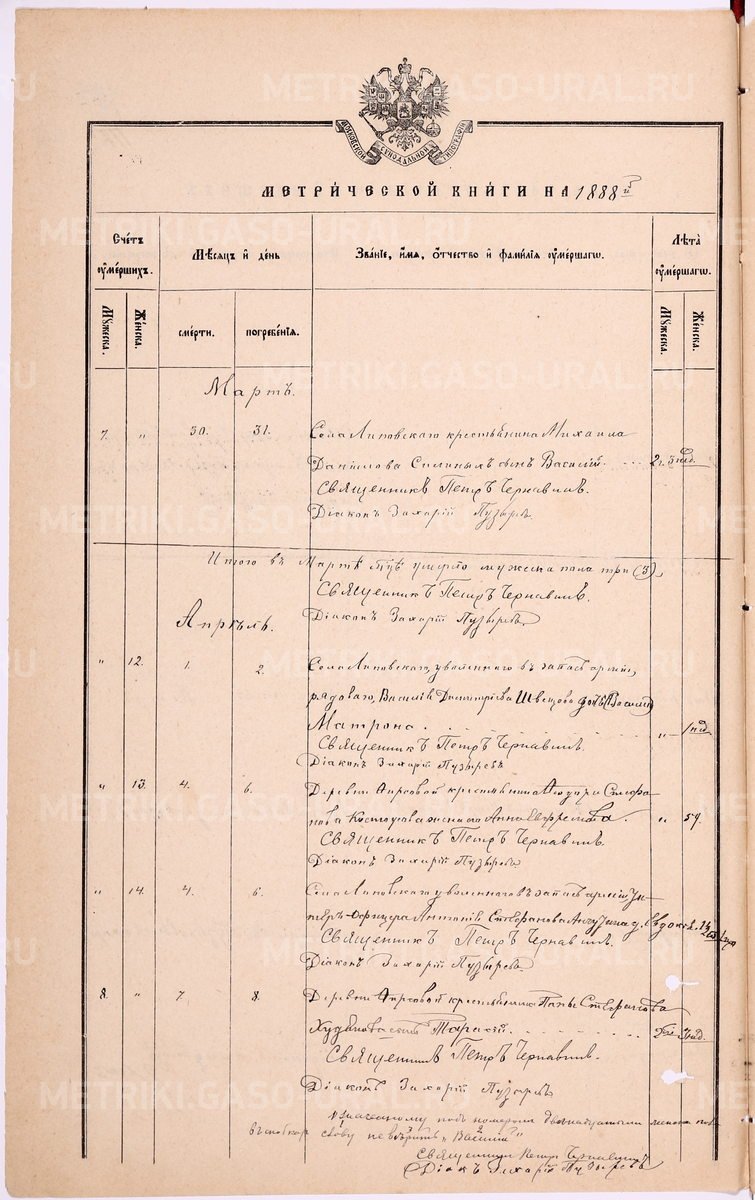 МОСКОВСКОЙ СѴНОДАЛЬНОЙ ТИПОГРАФІИ
МЕТРИ́ЧЕСКОЙ КНИ́ГИ НА 1888 й
Сче́тъ ᲂу҆ме́ршихъ.
Мꙋ́жеска.
Же́нска.
Мѣ́сяцъ и҆ де́нь
сме́рти.
погребе́нїя.
Зва́нїе, и҆́мя, ѻ҆́тчество и҆ фамилїя ᲂу҆ме́ршагѡ.
Лѣ́та ᲂу҆ме́ршагѡ.
Мꙋ́жеска.
Же́нска.
Мартъ.
7. " 30. 31. Села Липовскаго крестьянина Михаила
Данилова Силиныхъ сынъ Василій. 2 г. 3 нед.
Священникъ Петръ Чернавинъ.
Діаконъ Захарій Пузыревъ.
Итого въ Мартѣ мцѣ умерло мужеска пола три (3)
Священникъ Петръ Чернавинъ.
Діаконъ Захарій Пузыревъ.
Апрѣль.
" 12. 1. 2. Села Липовскаго, уволеннаго въ запасъ арміи,
рядоваго, Василія Димитріева Швецова дочь (Василій)
Матрона "
Священникъ Петръ Чернавинъ.
Діаконъ Захарій Пузыревъ
" 13. 4. 6. Деревни крестьянина Стефа
нова жена его Анна Евфремова. " 59
Священникъ Петръ Чернавинъ.
Діаконъ Захарій Пузыревъ.
" 14. 4. 6. Села Липовскаго уволеннаго въ запасъ арміи Ун
теръ-Офицера Антонія Стефанова д. Евдокія.
Священникъ Петръ Чернавинъ.
Діаконъ Захарій Пузыревъ.
8. " 7. 8. Деревни крестьянина Стефанова
Худякова сынъ Тарасій.
Священникъ Петръ Чернавинъ.
Діаконъ Захарій Пузыревъ
подъ номеромъ двенадцатымъ
въ скобкахъ слову не вѣрить "Василій"
Священникъ Петръ Чернавинъ
Діак. Захарій Пузыревъ
METRIKI.GASO-URAL.RU